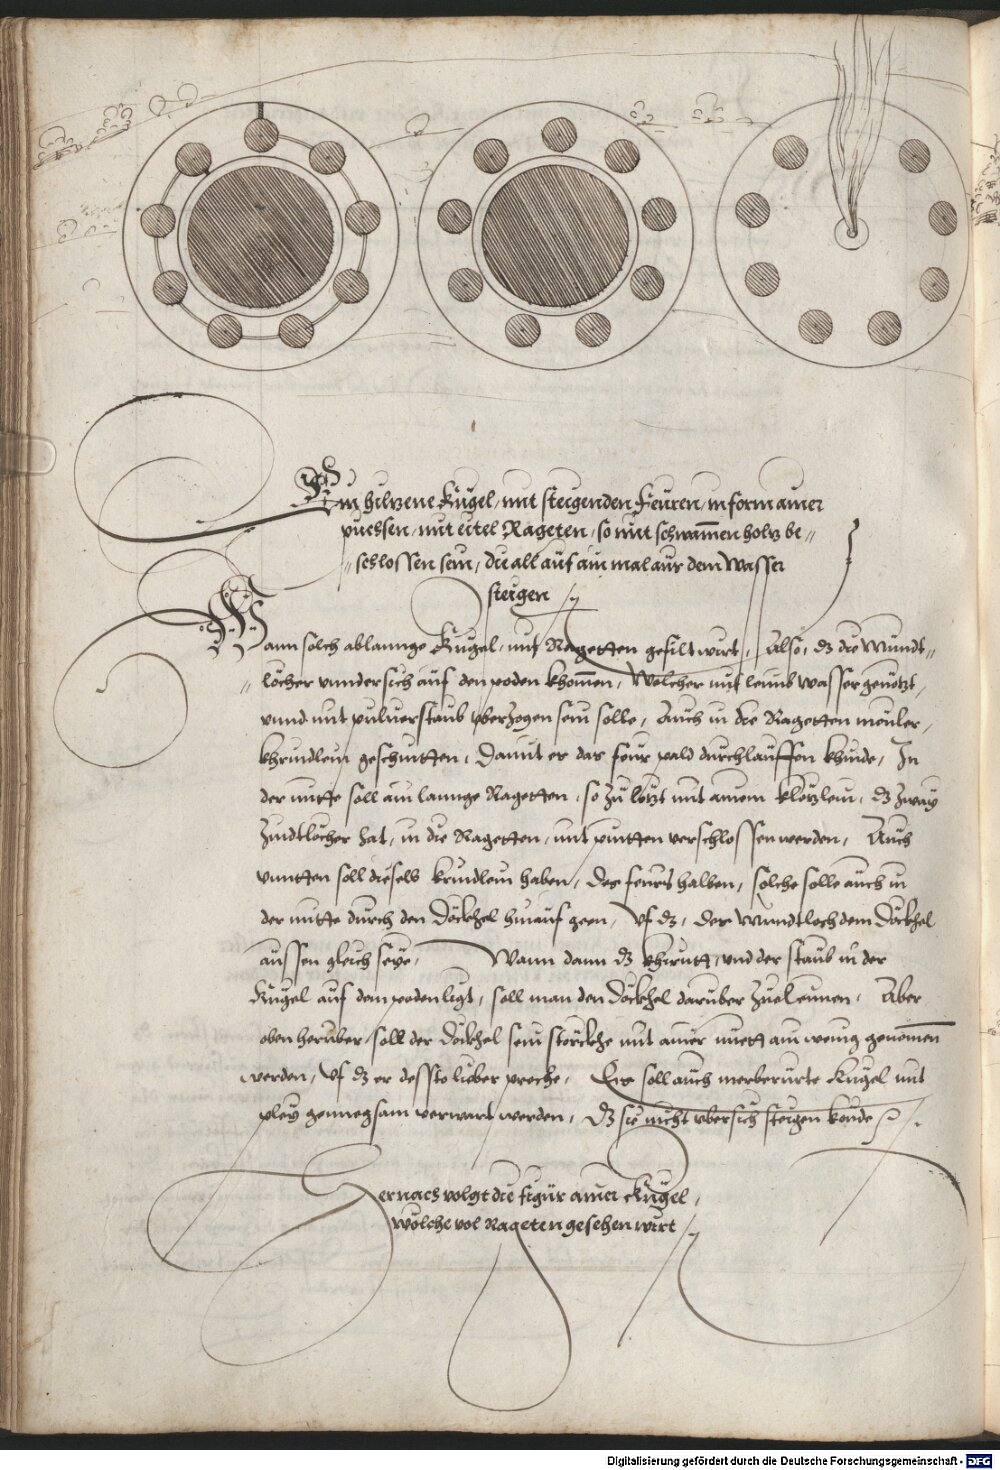 Ein hiltzene Kugel, mit steigenden Feuren, in form ainer
puchssen, mit eitel Rageten, so mit schwamen holtz be¬
schlossen sein, die all auf ain mal aus dem Wasser
steigen
Wann solch ablannge Kugel, mit Ragetten gefilt wirt, Also, dz die Mundt¬
löcher vndersich auf den poden khomen, Welcher mit leimb wasser genetzt,
vnnd mit puluerstaub vberzogen sein solle, Auch in die Ragetten meuler,
khrindlein geschnitten, Damit er das feur pald durchlauffen khinde, In
der mitte soll ain lannge Ragetten, so zu letzt mit ainem klötzlein, dz zway
Zindtlöcher hat, in die Ragetten, mit putten verschlossen werden, Auch
vnntten soll diesels krindlein haben, des feurs halben, solche solle auch in
der mitte durch den Döckhel hinauf geen, vf dz, der Mundtloch dem Döckhel
aussen gleich seye, Wann dann dz khrutt, vnd der staub in der
Kugel auf dem poden ligt, soll man den Döckhel darüber zueleimen, Aber
oben herüber, soll der Döckhel sein störckhe mit ainer nuett ain wenig genomen
werden, vf dz er dessto lieber preche, Es soll auch merberürte Kugel mit
pley genuegsam verwart werden, dz sie nicht vbersich steigen könde
Hernach volgt die figur ainer Kugel,
wölche vol Rageten gesehen wirt
Digitalisierung gefördert durch die Deutsche Forschungsgemeinschaft - DFG